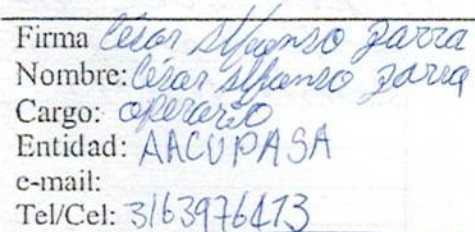 Firma César Alfonso Parra
Nombre: César Alfonso Parra
Cargo: operario
Entidad: AACUPASA
e-mail:
Tel/Cel: 3163976413